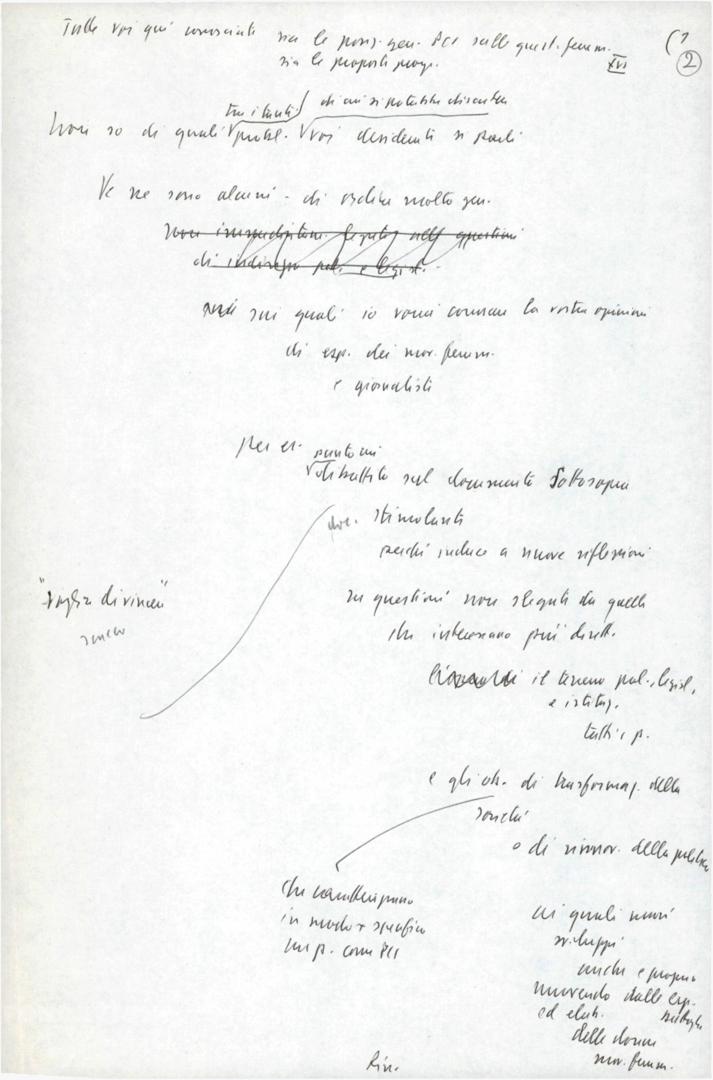 Tutte voi qui conoscete sia le posiz. gen. PCI sulle quest. femm.
sia le proposte progr. XVI
(2
tra i tanti di cui si potrebbe discutere
Non so di quali probl. voi desiderate si parli
Ve ne sono alcuni - di ordine molto gen.
non
di indirizzo pol. e legisl.
sui quali io vorrei conoscere la vostra opinione
di esp. dei mov. femm.
e giornaliste
per es. punto mi
dibattito sul documento Sottosopra
doc. stimolante
perché induce a nuove riflessioni
"voglia di vincere"
su questioni non slegate da quelle
che interessano più dirett.
il terreno pol., legisl.,
e istituz.
tutti i p.
e gli ob. di trasformaz. della
società
o di rinnov. della politica
che caratterizzano
in modo + specifico
un p. come PCI
ai quali nuovi
sviluppi
anche e proprio
muovendo dalle esp.
ed elab.
delle donne
mov. femm.
Rin.